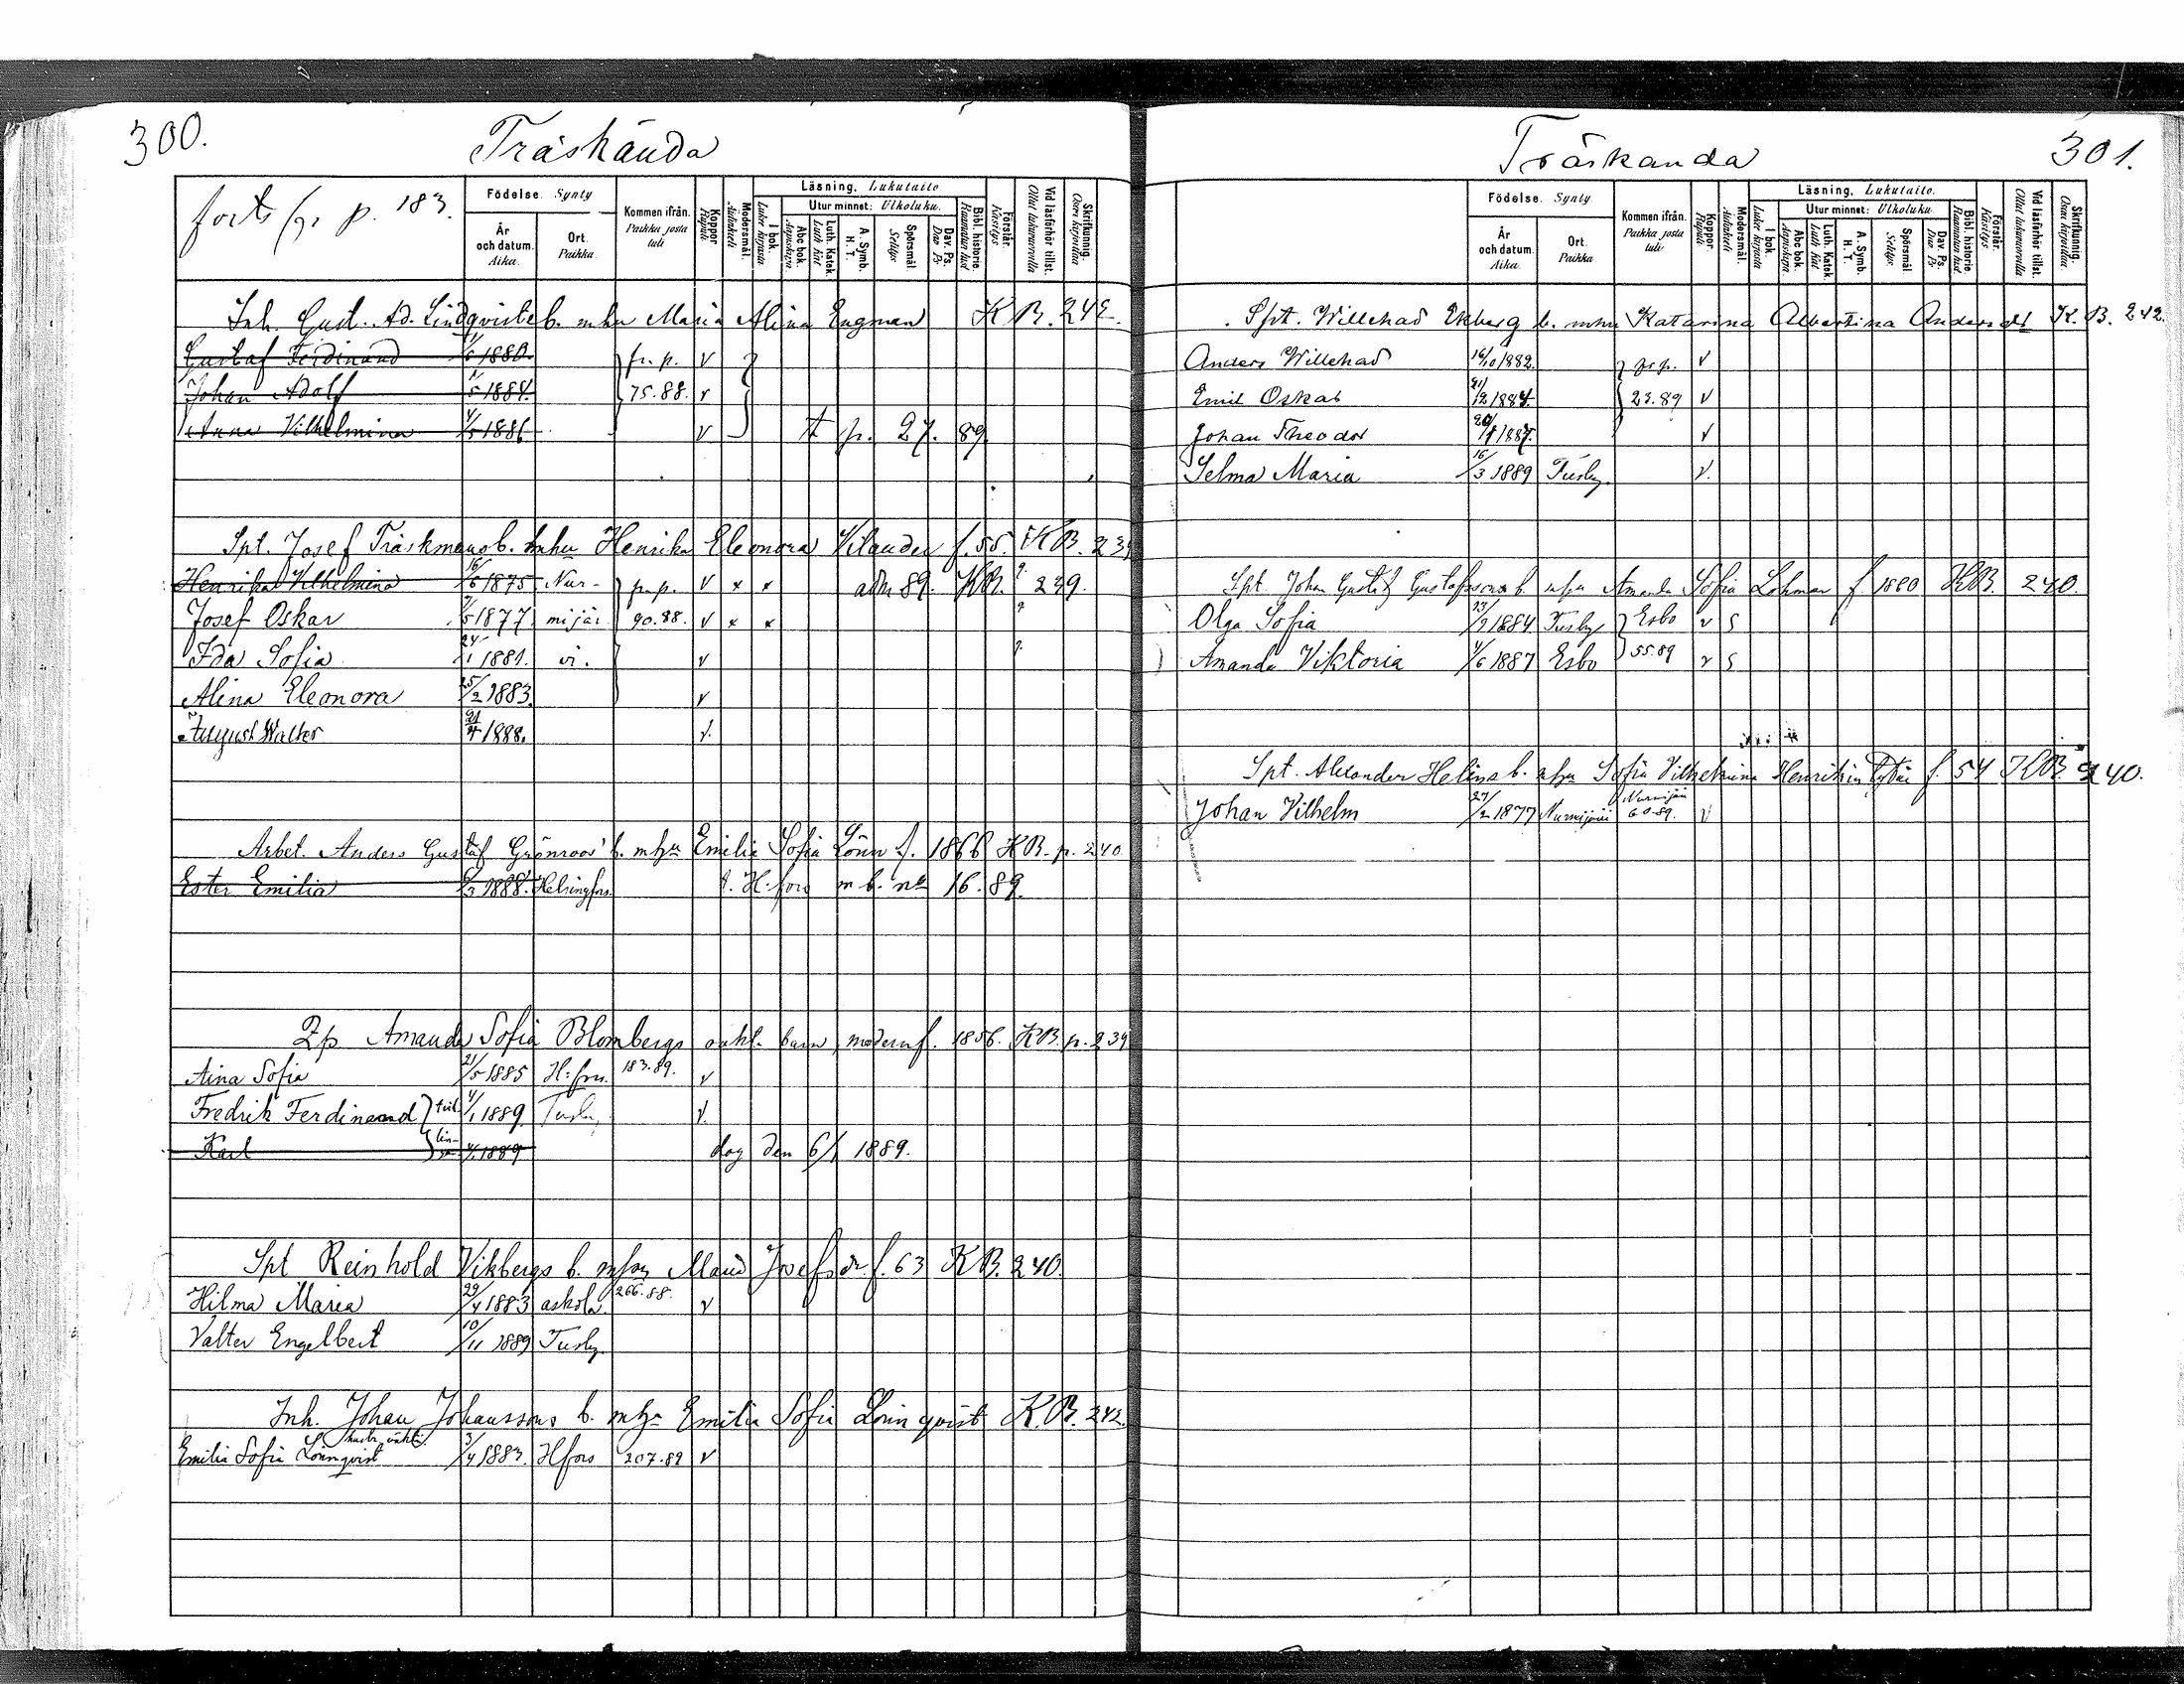 300.
Träskända
forts fr. p. 183.
Födelse. Synty
År och datum. Aika.
Ort. Paikka.
Kommen ifrån. Paikka josta tuli
Koppor. Rupuli
Modersmål. Äidinkieli
Läsning. Lukutaito
I bok. Luku kirjasta
Utur minnet: Ulkoluku.
Abc bok. Aapiskirja.
Luth. Katek. Luth kat
A. Symb. H. T.
Spörsmål. Selitys.
Dav. Ps. Dav Ps
Bibl. historie. Raamatun hist.
Förstår. Käsitys.
Vid läsförhör tillst. Ollut lukukuvuilla
Skrifkunnig. Osaa kirjoittaa
Inh. Gust. Ad. Lindqvists b. m hu Maria Alina Engman K B. 242.
Gustaf Ferdinand 1880. fr. p. v
Johan Adolf 1884. 75.88. v
Anna Vilhelmina 4/5 1886 v fr. 27. 89
Spt. Josef Träskmans b. m hu Henrika Eleonora Vilander f. 55. KB. 239
Henrika Vilhelmina 16/6 1875 Nur- fr. p. v x x adm 89. KB. 239.
Josef Oskar 7/5 1877 mijär 90.88. v x x
Ida Sofia 24/1 1881. vi. v
Alina Eleonora 25/2 1883. v
August Walter 21/4 1888. v.
Arbet. Anders Gustaf Grönroos' b. m hu Emilia Sofia Lönn f. 1866 KB. p. 240
Ester Emilia 6/3 1888. Helsingfors. t. H:fors m b. no 16. 89.
Amanda Sofia Blombergs oäkt. barn, modern f. 1856. KB. p. 239
Aina Sofia 21/5 1885 H:fors. 183.89. v
Fredrik Ferdinand tvil- 4/1 1889 Tusby v.
Karl lin- 4/1 1889 dog den 6/1 1889.
Spt Reinhold Vikbergs b. m hu Maria Josefsdr. f. 63 KB. 240.
Hilma Maria 29/4 1883 askola 266.88. v
Valter Engelbert 10/11 1889 Tusby
Inh. Johan Johanssons b. m hu Emilia Sofia Lönnqvist K.B. 242.
Emilia Sofia Lönnqvist 3/4 1883. Hfors 207.89 v
Träskanda
301.
Födelse. Synty
År och datum. Aika.
Ort. Paikka
Kommen ifrån. Paikka josta tuli
Koppor. Rupuli
Modersmål. Äidinkieli
Läsning. Lukutaito.
I bok. Luku kirjasta
Utur minnet: Ulkoluku.
Abc bok. Aapiskirja
Luth. Katek. Luth kat
A. Symb. H. T.
Spörsmål Selitys.
Dav. Ps. Dav Ps
Bibl. historie Raamatun hist.
Förstår. Käsitys
Vid läsförhör tillst. Ollut lukukuvuilla
Skrifkunnig. Osaa kirjoittaa.
Spt. Willehad Ekberg b. m hu Katarina Albertina Andersdr K. B. 242.
Anders Willehad 16/10 1882. fr. p. v
Emil Oskar 21/12 1884. 23.89 v
Johan Theodor 1887. v
Selma Maria 16/3 1889 Tusby. v.
Spt. Johan Gustaf Gustafssons b. m hu Amanda Sofia Lohman f. 1860 KB. 240.
Olga Sofia 23/9 1884 Tusby Esbo v S
Amanda Viktoria 1/6 1887 Esbo 55.89 v S
Spt. Alexander Helins b. m hu Sofia Vilhelmina Henrikin tytär f. 54 KB. 240.
Johan Vilhelm 27/2 1877 Nurmijärvi Nurmijärvi 60.89. v